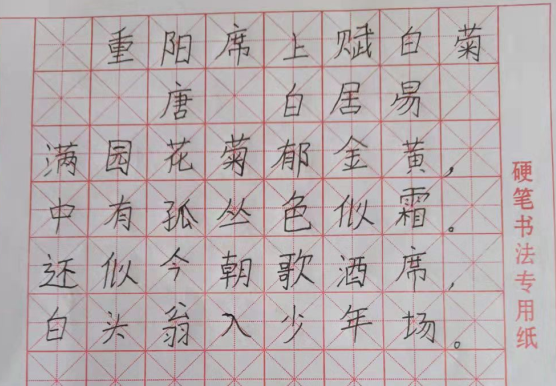 重阳席上赋白菊
唐 白居易
满园花菊郁金黄，
中有孤丛色似霜。
还似今朝歌酒席，
白头翁入少年场。
硬笔书法专用纸